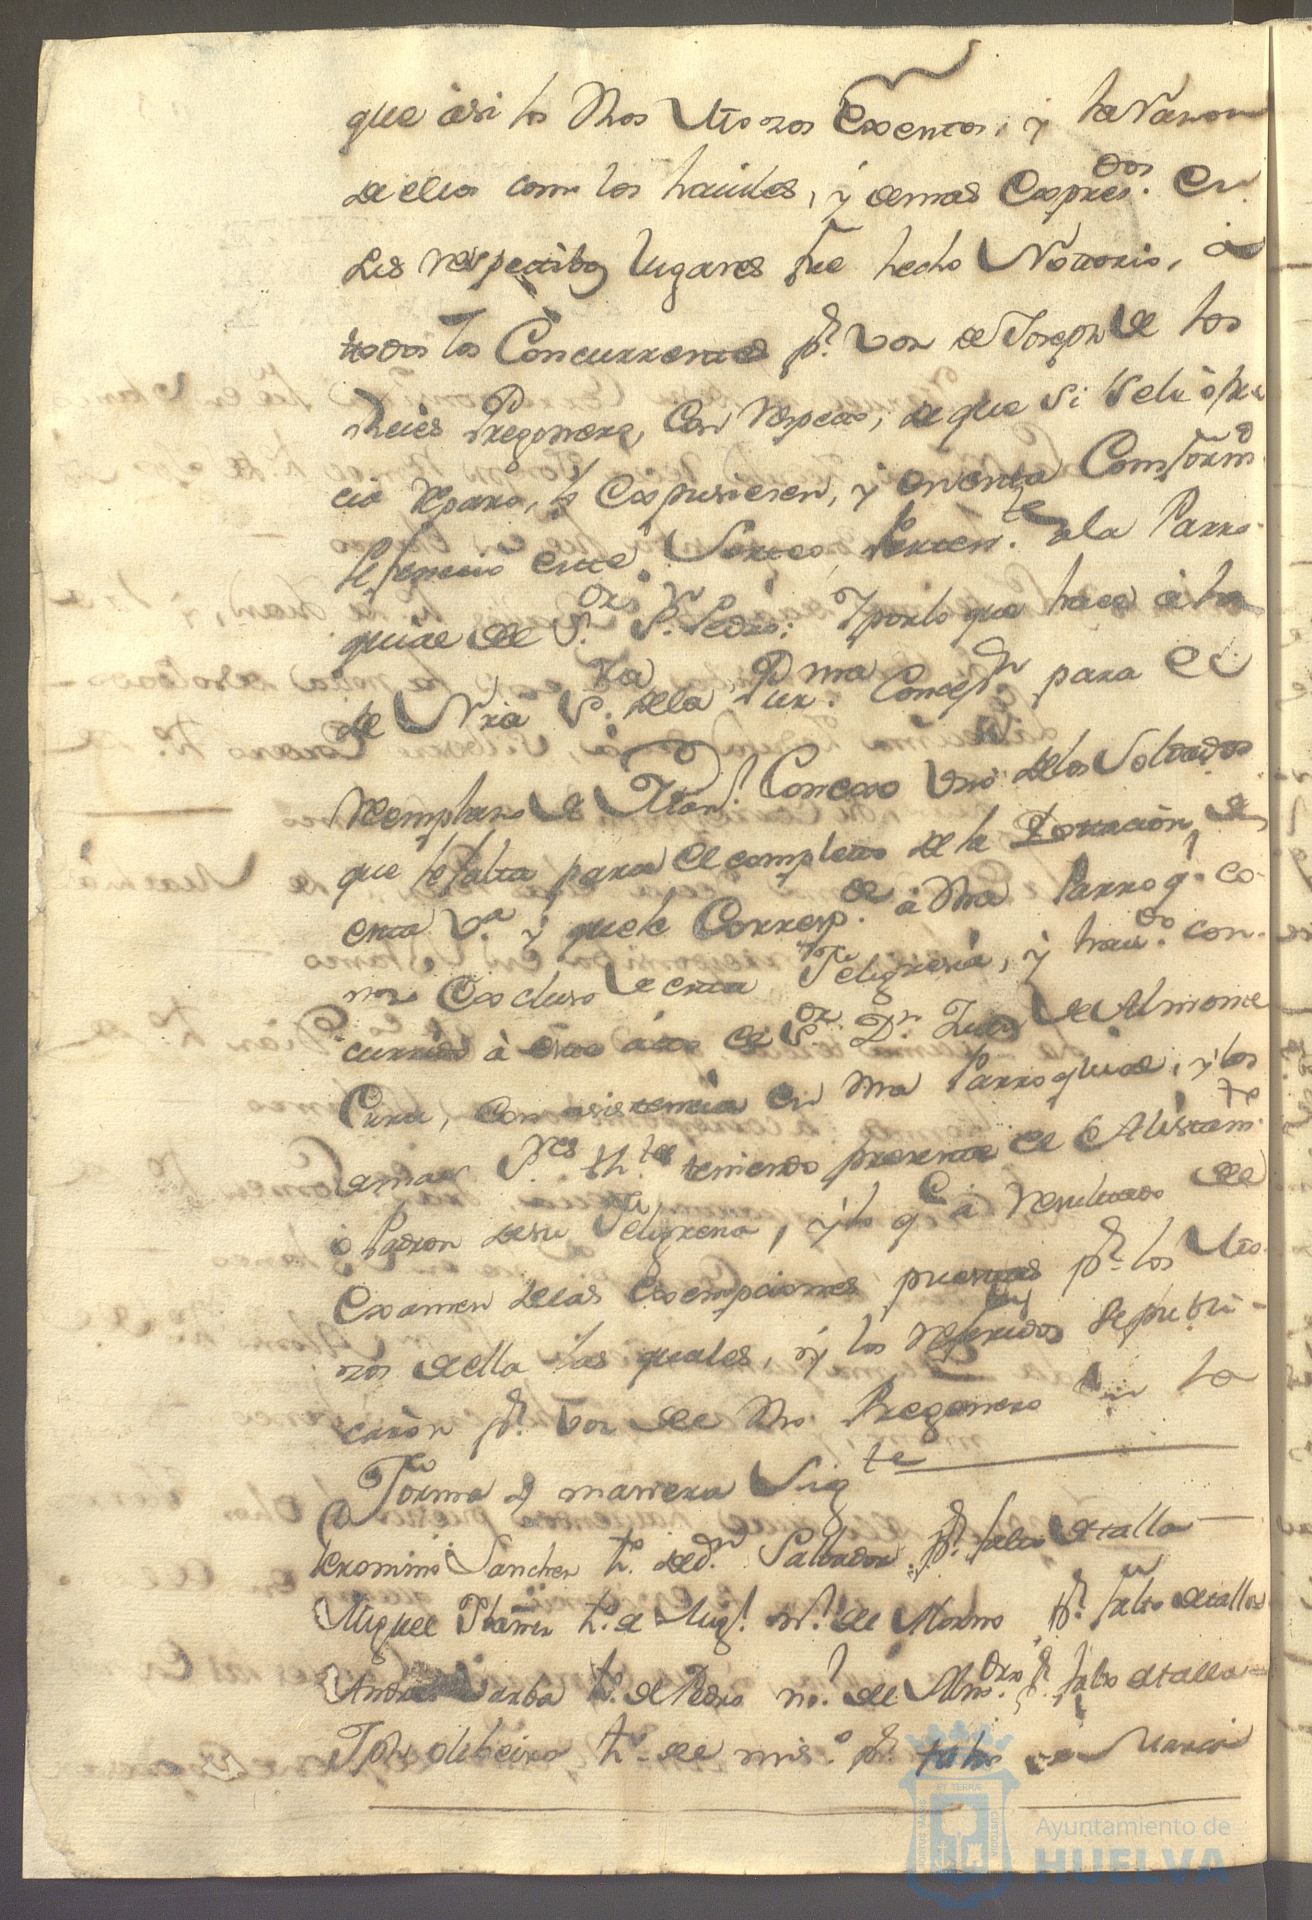 que asi los dhos Mozos Exsentos, y la Razon
de ellos como los haviles, y demas Expres.dos En
sus respectibos lugares fue hecho Nottorio, a
todos los Concurrentes pr. voz de Joseph de los
Reies Pregonero, con respecto, de que si se le ofre
cia reparo, lo Expusiesen, y en esta Conform.d
se fenecio este Sorteo, Perten.te a la Parro-
quial del S.or Sn. Pedro: Y por lo que hace a la
de Nra S.ra de la Pur.ma Concepn. para el
Remplazo de Franco. Conexo Uno de los Soldados
que le falta para el completto de la Dottacion, de
esta V.a y que le Corresp.de a dha Parroq.l co-
mo Excluso de esta Feligresia, y havdo. con-
currido a este acto el S.or Dn. de Almonte
Cura, con asistencia en dha Parroquial, y los
demas S.res tteniendo presente el Alistam.te
o Padron de su Feligresia, y lo q.e a resultado del
Examen de las Exempciones puestas pr. los Mo-
zos de ella las quales, y los referidos se publi-
caron pr. voz de dho Pregonero en la
Forma y manera Sig.te
Geronimo Sanchez h.o de dn. Salbador pr. falto de talla
Miguel Ibañez h.o de Migl. nl. de Moreno pr. falto de talla
Andres Barba h.o de Pedro nl. de pr. falto de talla
Jph. de h.o del mis.o pr. falto
Ayuntamiento de
HUELVA